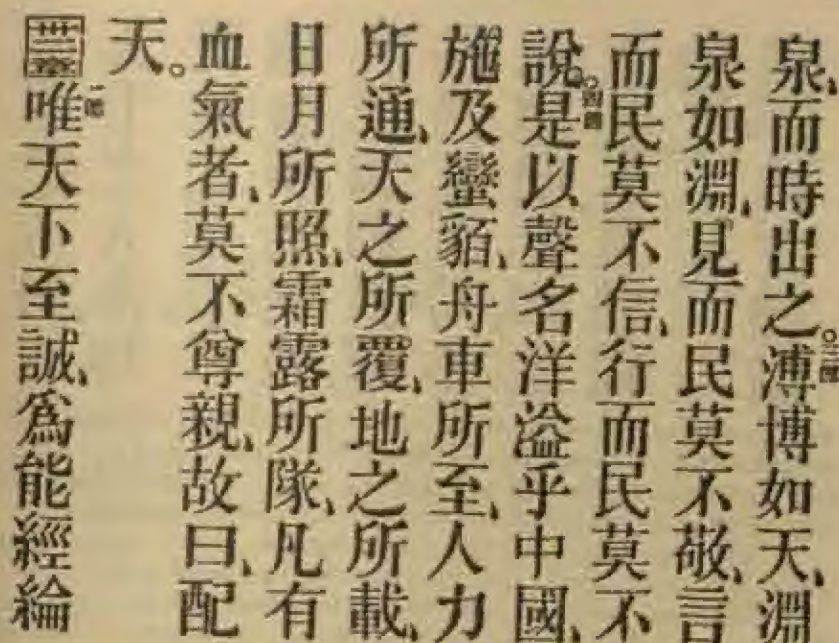 泉、而時出之。三節溥博如天、淵
泉如淵、見而民莫不敬、言
而民莫不信、行而民莫不
說。四節是以聲名洋溢乎中國、
施及蠻貊、舟車所至、人力
所通、天之所覆、地之所載、
日月所照、霜露所隊、凡有
血氣者、莫不尊親、故曰、配
天。
卅二章一節唯天下至誠、爲能經綸